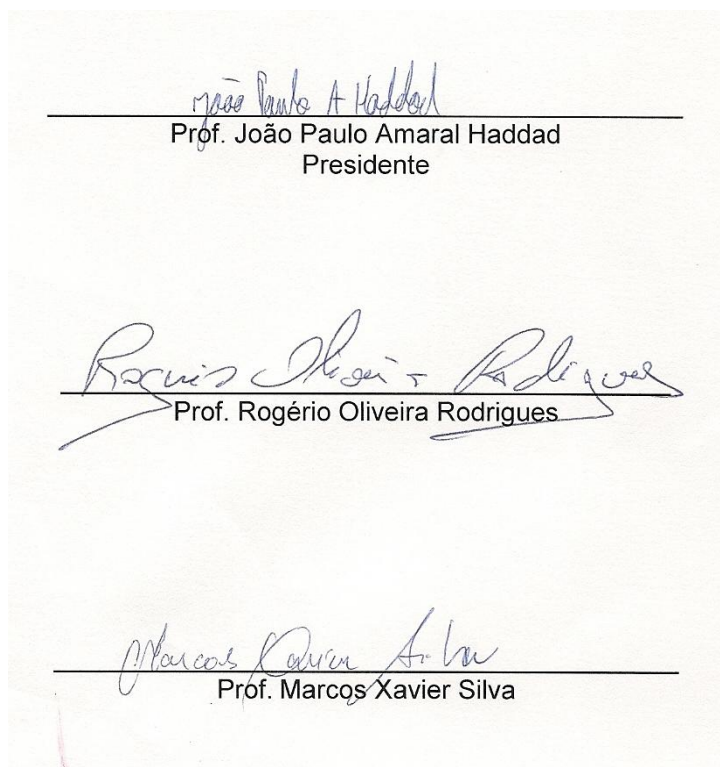 João Paulo A Haddad
Prof. João Paulo Amaral Haddad
Presidente
Rogério Oliveira Rodrigues
Prof. Rogério Oliveira Rodrigues
Marcos Xavier Silva
Prof. Marcos Xavier Silva